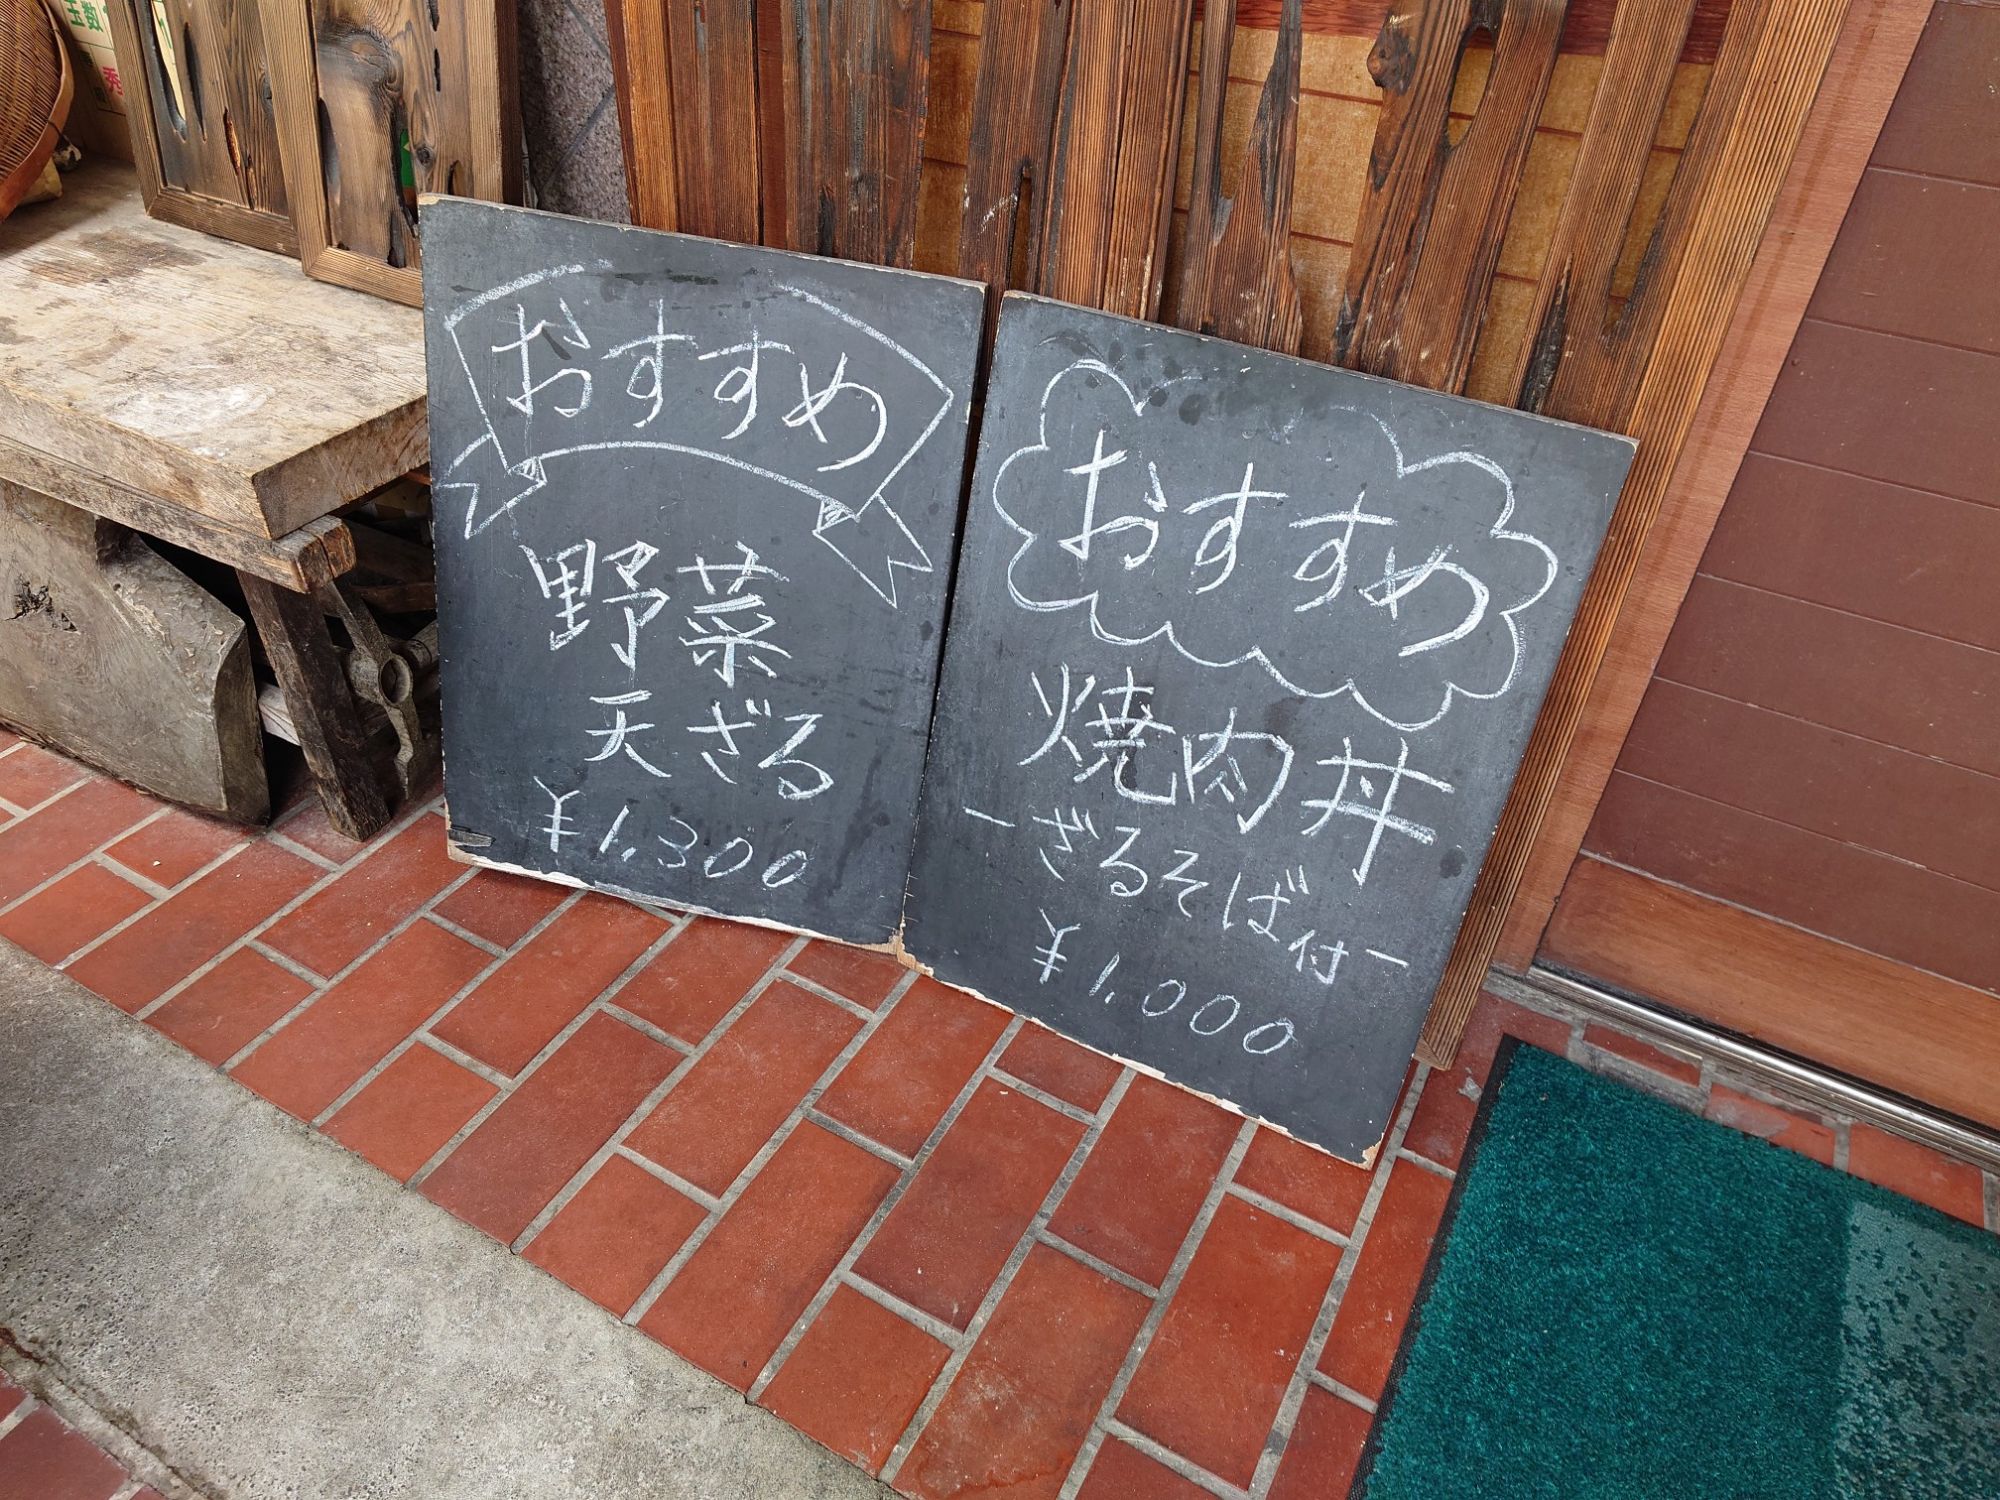 おすすめ
野菜
天ざる
¥1,300
おすすめ
焼肉丼
-ざるそば付-
¥1,000
秀